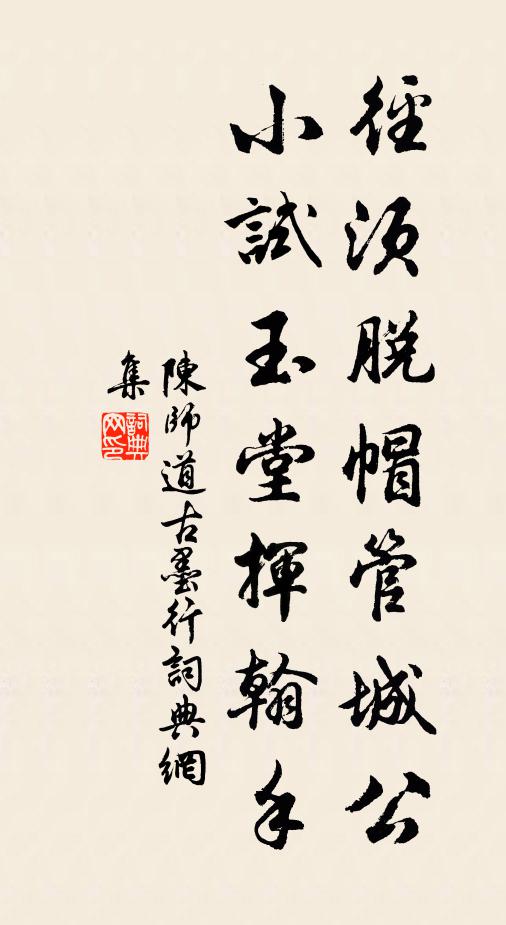 徑須脫帽管城公
小試玉堂揮翰手
陳師道古墨行詞典網
集
詞典
网印